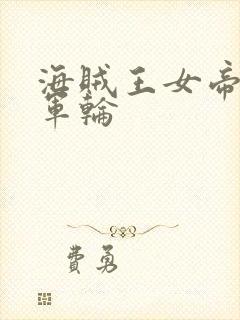 海賊王女帝
軍輪
費勇